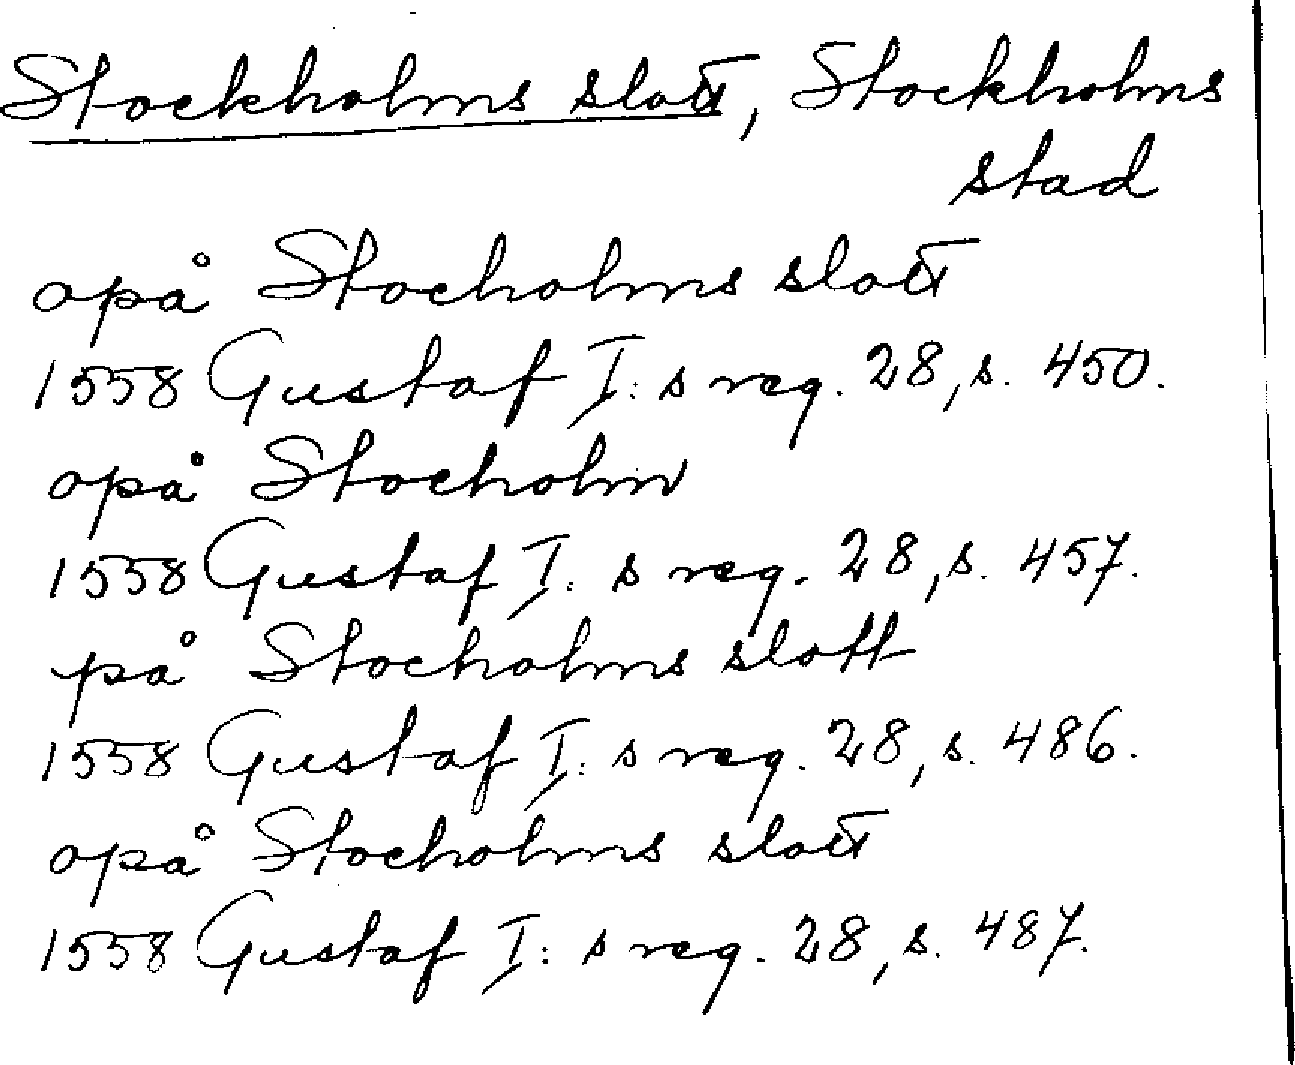 Stockholms slott, Stockholms
stad
opå Stocholms slott
1558 Gustaf I: s reg. 28, s. 450.
opå Stocholm
1558 Gustaf I: s reg. 28, s. 457.
på Stocholms slott
1558 Gustaf I: s reg. 28, s. 486.
opå Stocholms slott
1558 Gustaf I: s reg. 28, s. 487.